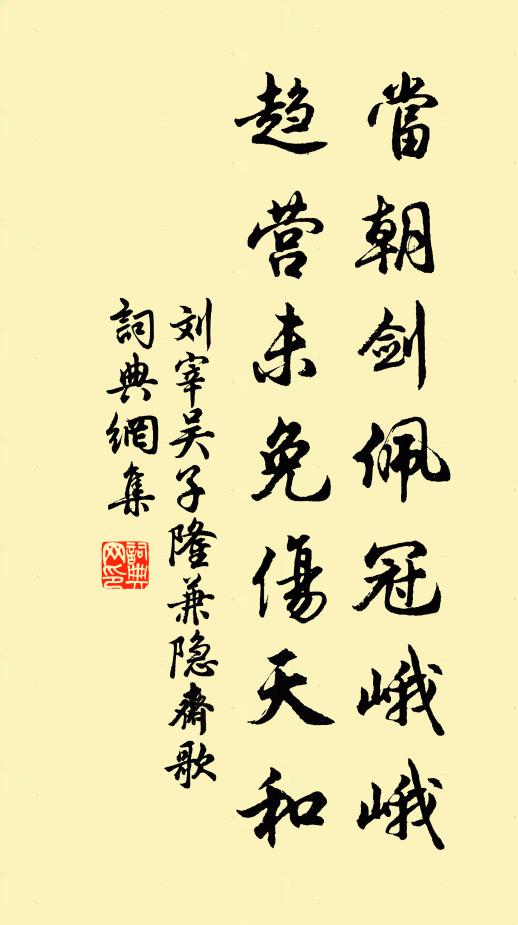 當朝剑佩冠峨峨
趋营未免傷天和
刘宰吴子隆兼隐齋歌
詞典網集
詞典网印